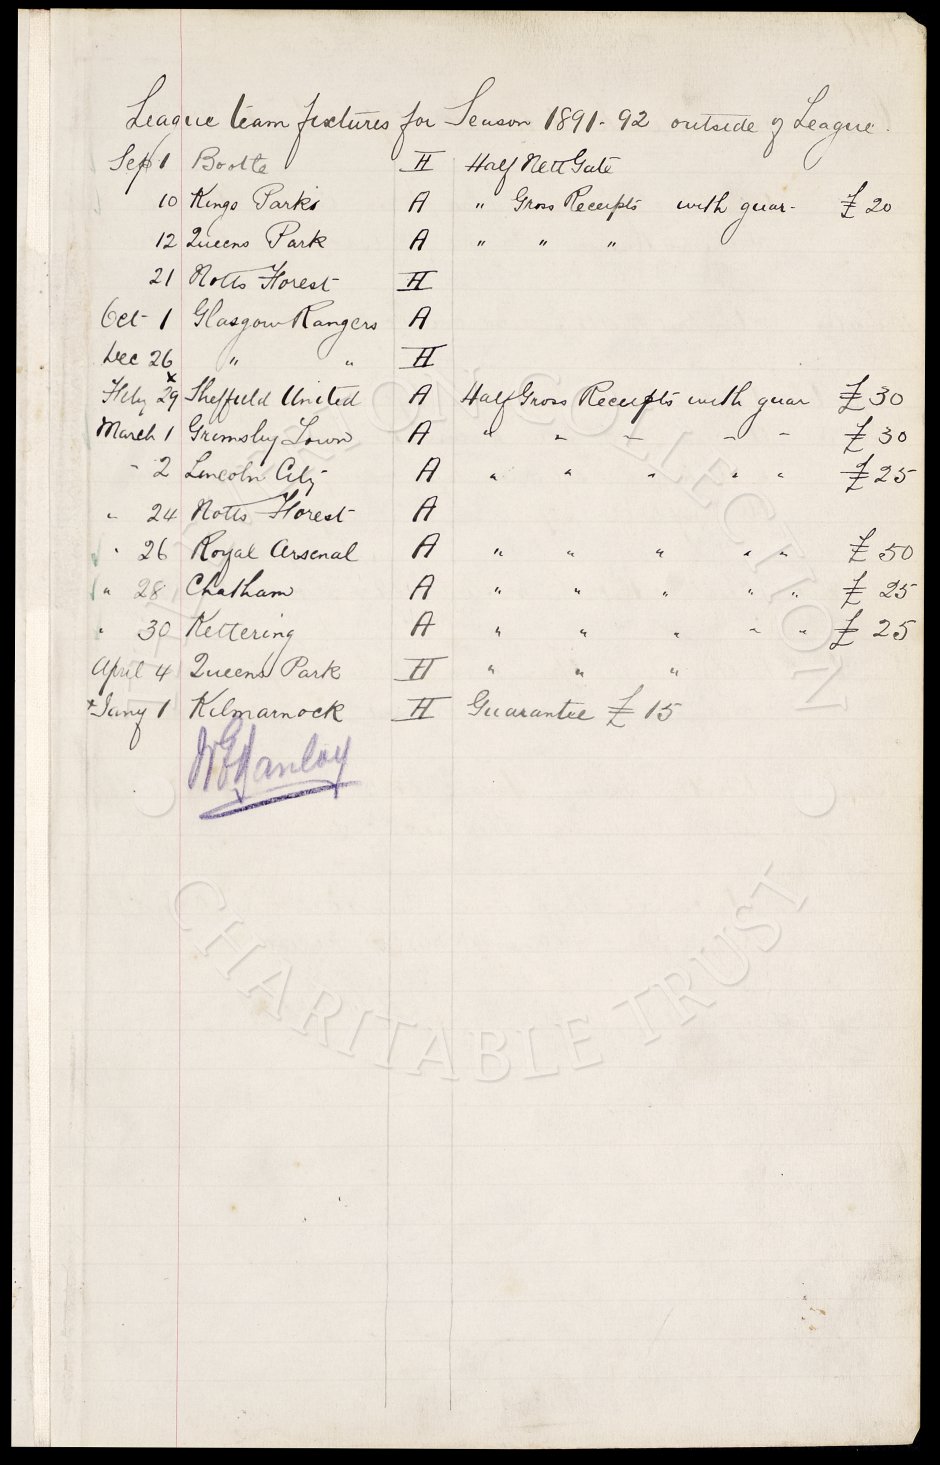 League team fixtures for Season 1891-92 outside of League.
Sep 1 Bootle H Half Nett Gate
10 Kings Park A " Gross Receipts with guar- £20
12 Queens Park A " " "
21 Notts Forest H
Oct 1 Glasgow Rangers A
Dec 26 " " H
x
Feby 29 Sheffield United A Half Gross Receipts with guar £30
March 1 Grimsby Town A " " " " " £30
" 2 Lincoln City A " " " " " £25
" 24 Notts Forest A
" 26 Royal Arsenal A " " " " " £50
" 28 Chatham A " " " " " £25
" 30 Kettering A " " " " " £25
April 4 Queens Park H " " "
+ Jany 1 Kilmarnock H Guarantee £15
COLLECTION
CHARITABLE TRUST